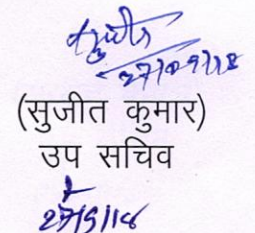 27/09/18
(सुजीत कुमार)
उप सचिव
27/9/18